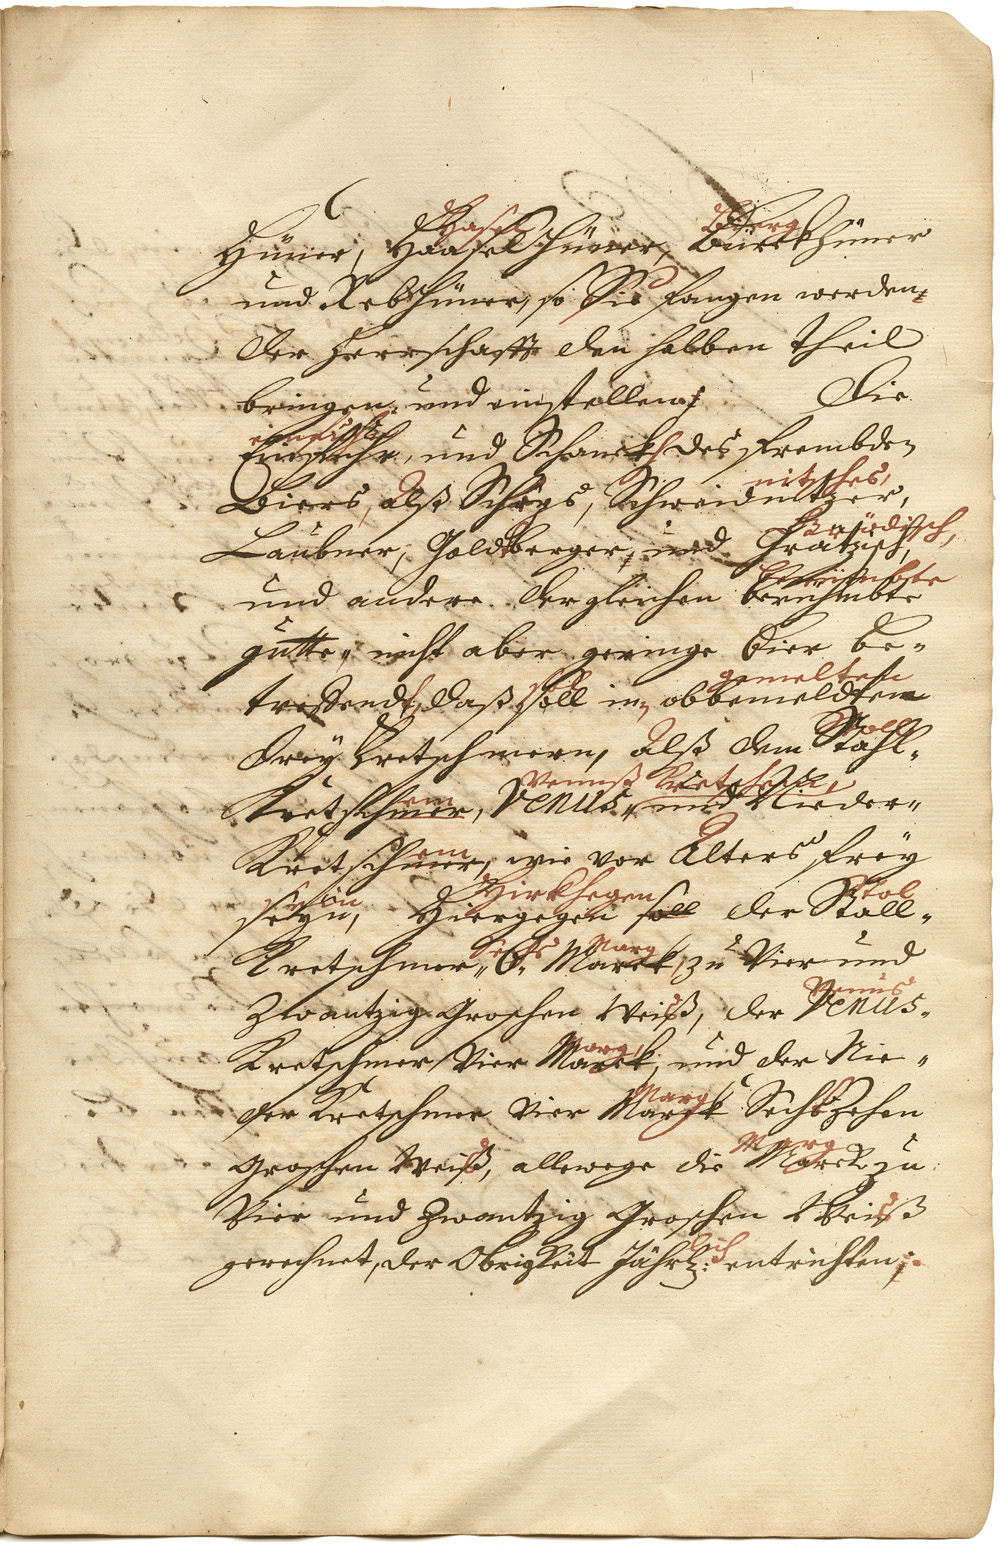 Hasel Berg
Hüner, Haasel Hüner, Bürckhüner
und Rebhüner, so Sie fangen werden,
der Herrschafft den halben theil
bringen, und einstellen, Die
einfuhr
Einfuhr, und Schanck des frembden
nitsches,
Biers, alß Schöps, Schweidnitzer,
Laubner, Goldberger, und Grätzisch,
berümbte
und andere dergleichen berühmbte
gutte, nicht aber geringe Bier be-
gemelten
treffend, daß soll in obbemeldten
Stoll
drey Kretschmern, alß dem Stahl-
em Venuß Kretschem,
Kretschmer, Venus, und Nieder-
em
Kretschmer, wie vor Alters frey
sein Hirkhegen Stol
seyn, Hiergegen soll der Stall-
sechs Marg
Kretschmer, 6. Marck, zu Vier und
Venus
Zwantzig Groschen Weiß, der Venus-
Marg
Kretschmer Vier Marck, und der Nie-
Marg
der Kretschmer Vier Marck Sechzehen
Marg
Groschen Weiß, allewege die Marck zu
Vier und Zwantzig Groschen Weiß
lich
gerechnet, der Obrigkeit Jährl: entrichten,